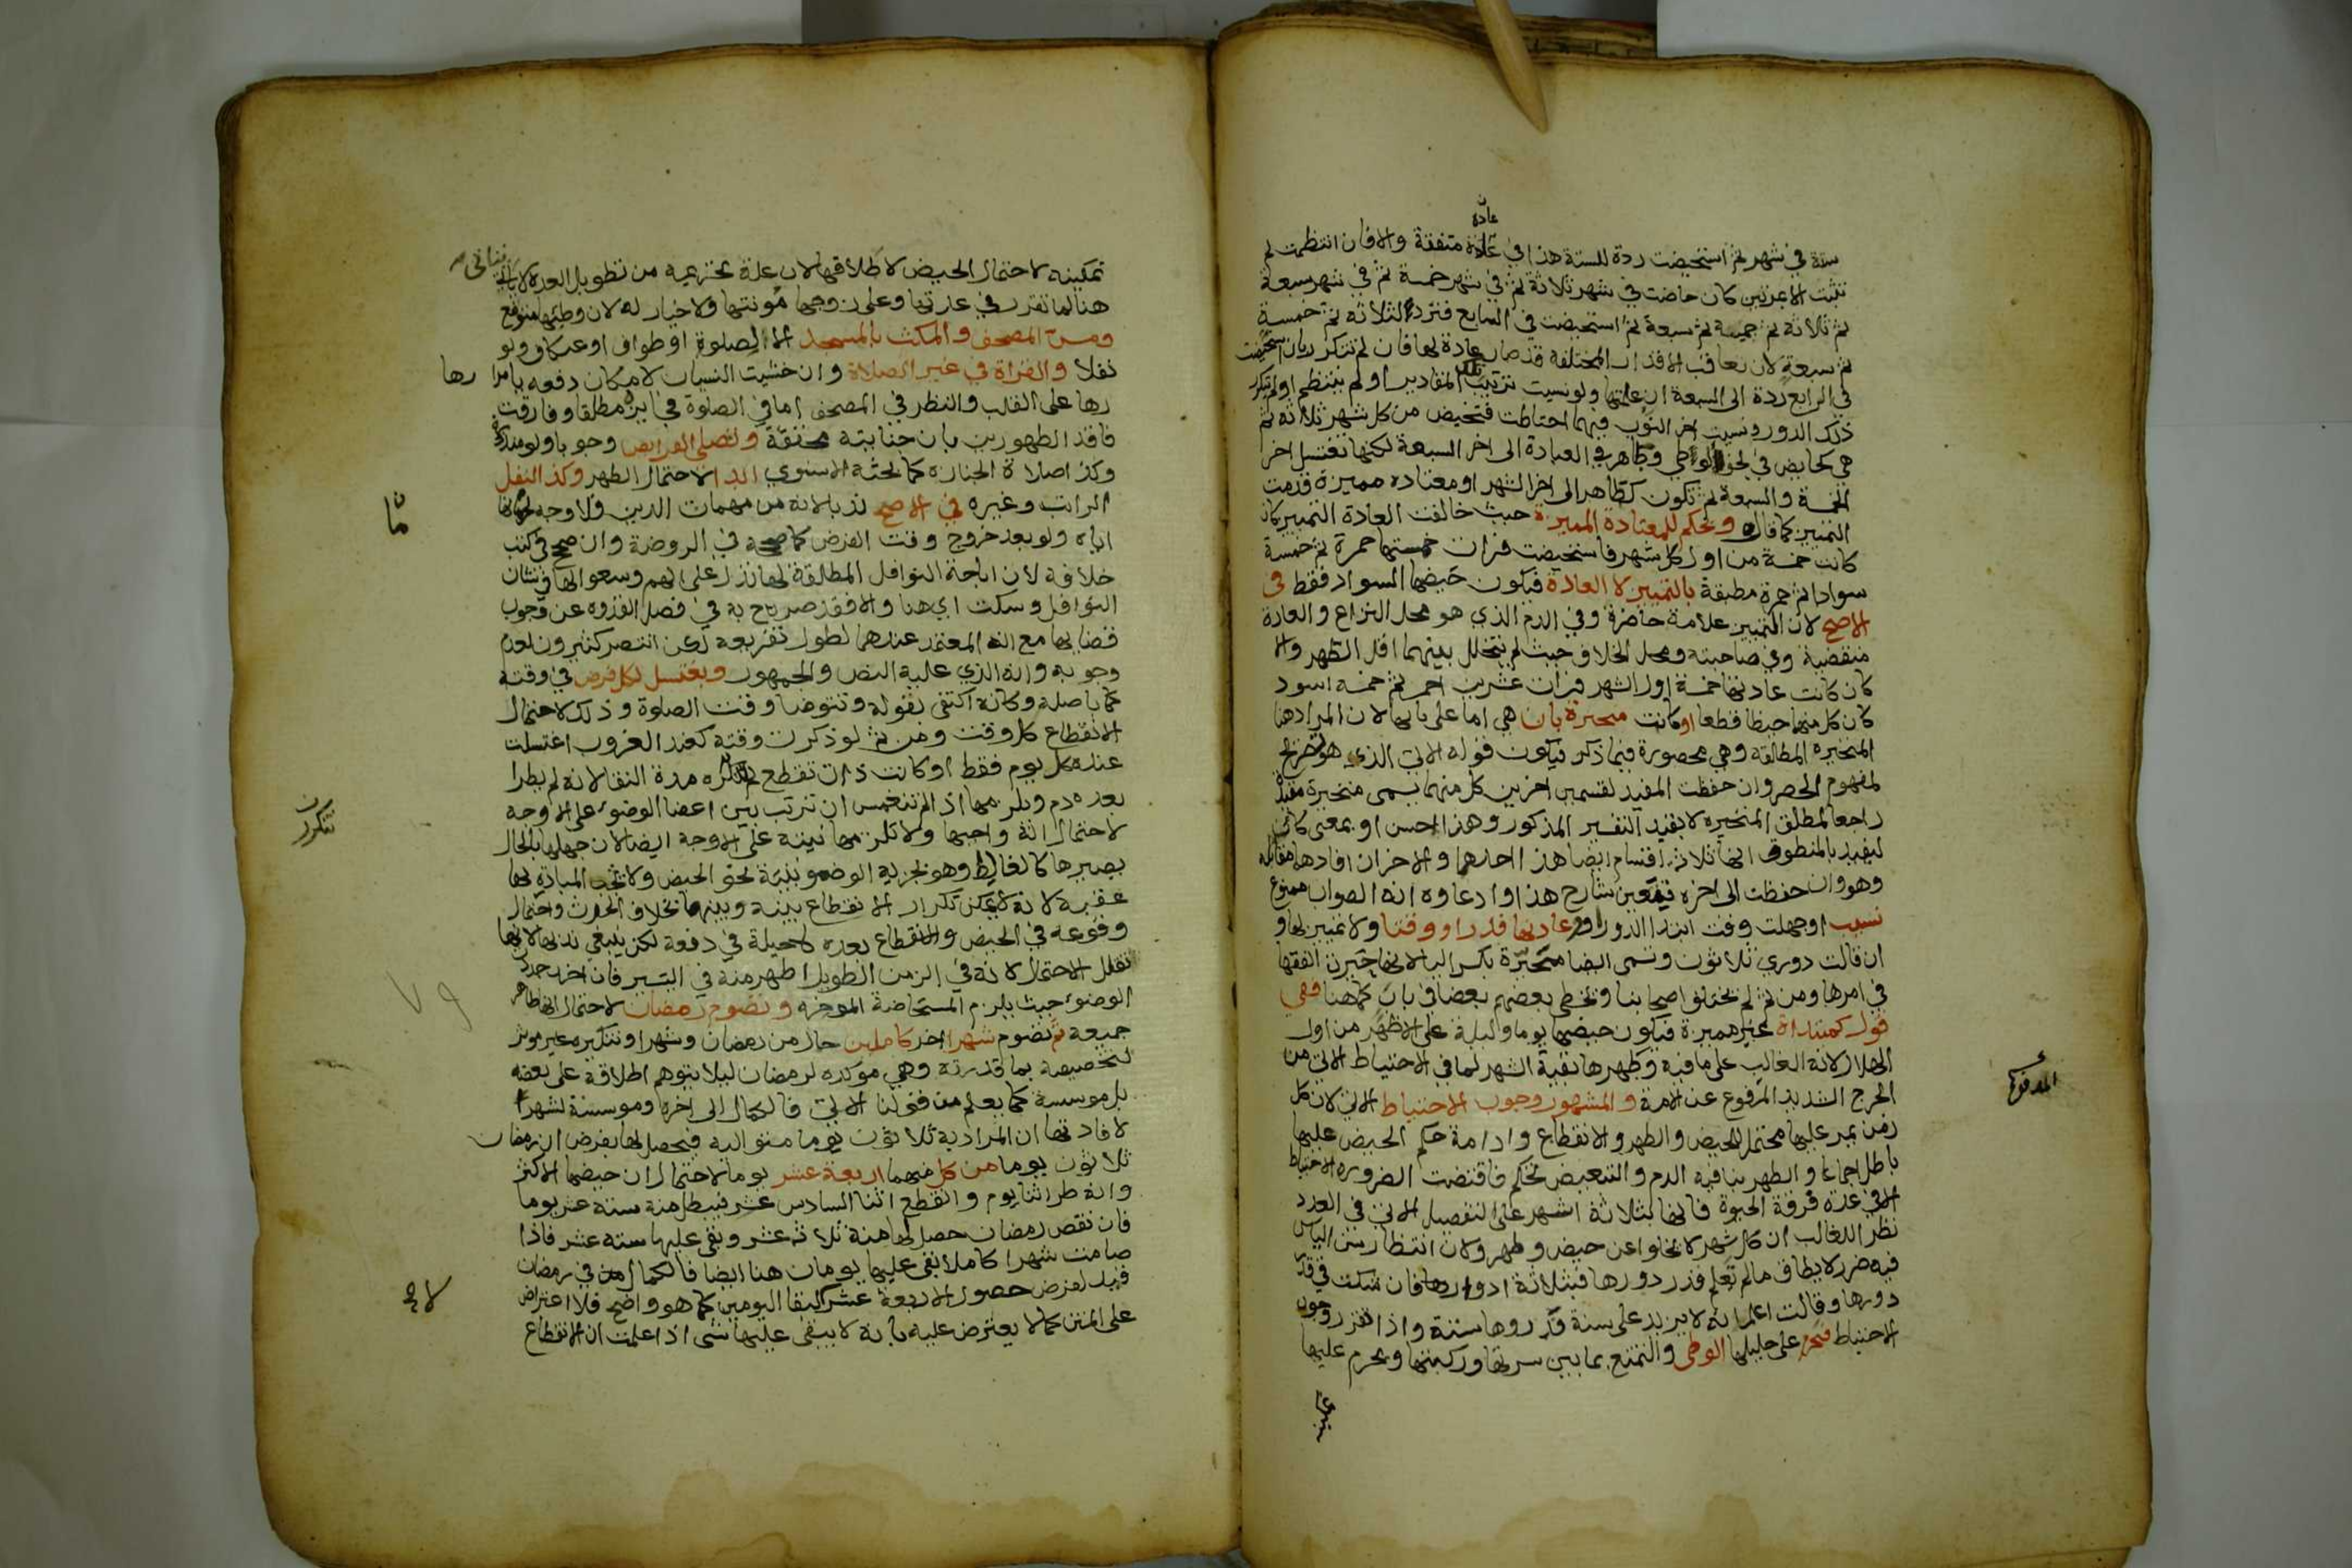 ستة في شهر ثم استحيضت ردة للستة هذا في عادة متفقة والا فان انتظمت لم
تثبت الا بمرتين كان حاضت في شهر ثلاثة ثم في شهر خمسة ثم في شهر سبعة
ثم ثلاثة ثم خمسة ثم سبعة ثم استحيضت في السابع فترد الثلاثة ثم خمسة
ثم سبعة لان تعاقب الاقدار المختلفة قد صار عادة لها فان لم تتكرر بان استحيضت
في الرابع ردة الى السبعة ان علمتها ولو نسيت ترتيب تلك المقادير او لم ينتظم او لم يتكرر
ذلك الدور ونسيت اخر النوب فيهما احتاطت فتحيض من كل شهر ثلاثة ثم
هي كحايض في نحو الوطي وطاهر في العبادة الى اخر السبعة لكنها تغتسل اخر
الخمسة والسبعة ثم تكون كطاهر الى اخر الشهر او معتاده مميزة قدمت
التمييز كما قال ويحكم للمعتادة المميزة حيث خالفت العادة التمييز كان
كانت خمسة من اول كل شهر فاستحيضت فرات خمستها حمرة ثم خمسة
سوادا ثم حمرة مطبقة بالتمييز لا العادة فيكون حيضها السواد فقط في
الاصح لان التمييز علامة حاضرة وفي الدم الذي هو محل النزاع والعادة
منقضية وفي صاحبته ومحل الخلاف حيث لم يتخلل بينهما اقل الطهر والا
كان كانت عادتها خمسة اول الشهر فرات عشرين احمر ثم خمسة اسود
كان كل منهما حيضا قطعا او كانت متحيرة بان هي اما على بابها لان المراد هنا
المتحيره المطلقة وهي محصورة فيما ذكر فيكون قوله الاتي الذي هو تصريح
لمفهوم الحصر وان حفظت المفيد لقسمين اخرين كل منهما يسمى متحيرة مقيدة
راجعا لمطلق المتحيره لا بقيد التفسير المذكور وهذا احسن او بمعنى كان
ليفيد بالمنطوق انها ثلاثة اقسام ايضا هذا احدهما والاخران افادهما مقابله
وهو وان حفظت الى اخره فتعين شارح هذا وادعاوه انه الصواب ممنوع
نسيت او جهلت وقت ابتدا الدور او عادتها قدرا ووقتا ولا تمييز لها و
ان قالت دوري ثلاثون وتسمى ايضا متحيرة بكسر اليا لانها حيرت الفقها
في امرها ومن ثم لم تختلف اصحابنا وتخطى بعضهم بعضا في باب كما هنا ففي
قول كمبتداة غير مميزة فيكون حيضها يوما وليلة على الاظهر من اول
الهلال لانه الغالب على ما فيه وطهرها بقية الشهر لما في الاحتياط الاتي من
الحرج الشديد المرفوع عن الامة والمشهور وجوب الاحتياط الاتي لان كل
زمن يمر عليها محتمل للحيض والطهر والانقطاع وادامة حكم الحيض عليها
باطل اجماعا والطهر ينافيه الدم والتبعيض تحكم فاقتضت الضروره الاحتياط
الا في عدة فرقة الحيوة فانها بثلاثة اشهر على التفصيل الاتي في العدد
نظرا للغالب ان كل شهر لا يخلوا عن حيض وطهر ولان انتظار سن الياس
فيه ضرر لا يطاق ما لم تعلم قدر دورها فبثلاثة ادوارها فان شكت في قدر
دورها وقالت اعلم انه لا يزيد على سنة قدر دورها سنة واذا تقرر وجوب
الاحتياط فيحرم على حليلها الوطى والتمتع بما بين سرتها وركبتها ويحرم عليها
المرفوع
تمكينه لاحتمال الحيض لا طلاقها لان علة تحريمه من تطويل العدة لا يتاتى
هنا لما تقرر في عدتها وعلى زوجها مونتها ولا خيار له لان وطيها متوقع
ومس المصحف والمكث بالمسجد الا لصلوة او طواف او اعتكاف ولو
نفلا والقراة في غير الصلاة وان خشيت النسيان لامكان دفعه بامرا
رها على القلب والنظر في المصحف اما في الصلوة فجايزه مطلقا وفارقت
فاقد الطهورين بان جنابته محققة وتصلي الفرايض وجوبا ولو منذورة
وكذا صلاة الجنازه كما بحثه الاسنوي ابدا لاحتمال الطهر وكذا النفل
الراتب وغيره في الاصح ندبا لانه من مهمات الدين فلا وجه لحرمانها
اياه ولو بعد خروج وقت الفرض كما صححه في الروضة وان صحح في كتب
خلافه لان اباحة النوافل المطلقة لها تدل على انهم وسعوا لها في شان
النوافل وسكت اي هنا والا فقد صرح به في فصل القدوه عن وجوب
قضايها مع انه المعتمد عندهما لطول تفريعه لكن انتصر كثيرون لعدم
وجوبه وانه الذي عليه النص والجمهور وتغتسل لكل فرض في وقته
كما باصله وكانه اكتفى بقوله وتتوضا وقت الصلوة وذلك لاحتمال
الانقطاع كل وقت ومن ثم لو ذكرت وقته كعند الغروب اغتسلت
عنده كل يوم فقط او كانت ذات تقطع لم تكرره مدة النقا لانه لم يطرا
بعده دم ويلزمها اذا لم تنغمس ان ترتب بين اعضا الوضوء على الاوجه
لاحتمال انه واجبها ولا تلزمها نيته على الاوجه ايضا لان جهلها بالحال
يصيرها كالغالط وهو يجزيه الوضو بنية نحو الحيض ولا تجب المبادرة لها
عقبه لانه لا يمكن تكرار الانقطاع بينه وبينها بخلاف الحدث واحتمال
وقوعه في الحيض والانقطاع بعده لا حيلة في دفعه لكن ينبغي ندبها لانها
تقلل الاحتمال لانه في الزمن الطويل اظهر منه في اليسير فان اخرت جددت
الوضوء حيث يلزم المستحاضة الموخره وتصوم رمضان لاحتمال الطهر
جميعه ثم تصوم شهرا اخر كاملين حال من رمضان وشهرا وتنكيره غير موثر
لتخصيصه بما قدرته وهي موكده لرمضان ليلا يتوهم اطلاقه على بعضه
بل موسسة كما يعلم من قولنا الاتي فالكمال الى اخره وموسسة لشهرا
لافادتها ان المراد به ثلاثون يوما متوالية فيحصل لها بفرض ان رمضان
ثلاثون يوما من كل منهما اربعة عشر يوما لاحتمال ان حيضها الاكثر
وانه طرا اثنا يوم وانقطع اثنا السادس عشر فيبطل منه ستة عشر يوما
فان نقص رمضان حصل لها منه ثلاثة عشر وبقي عليها ستة عشر فاذا
صامت شهرا كاملا بقي عليها يومان هنا ايضا فالكمال في رمضان
قيد لغرض حصول الاربعة عشر لا لبقا اليومين كما هو واضح فلا اعتراض
على المتن كما لا يعترض عليه بانه لا يبقى عليها شى اذا علمت ان الانقطاع